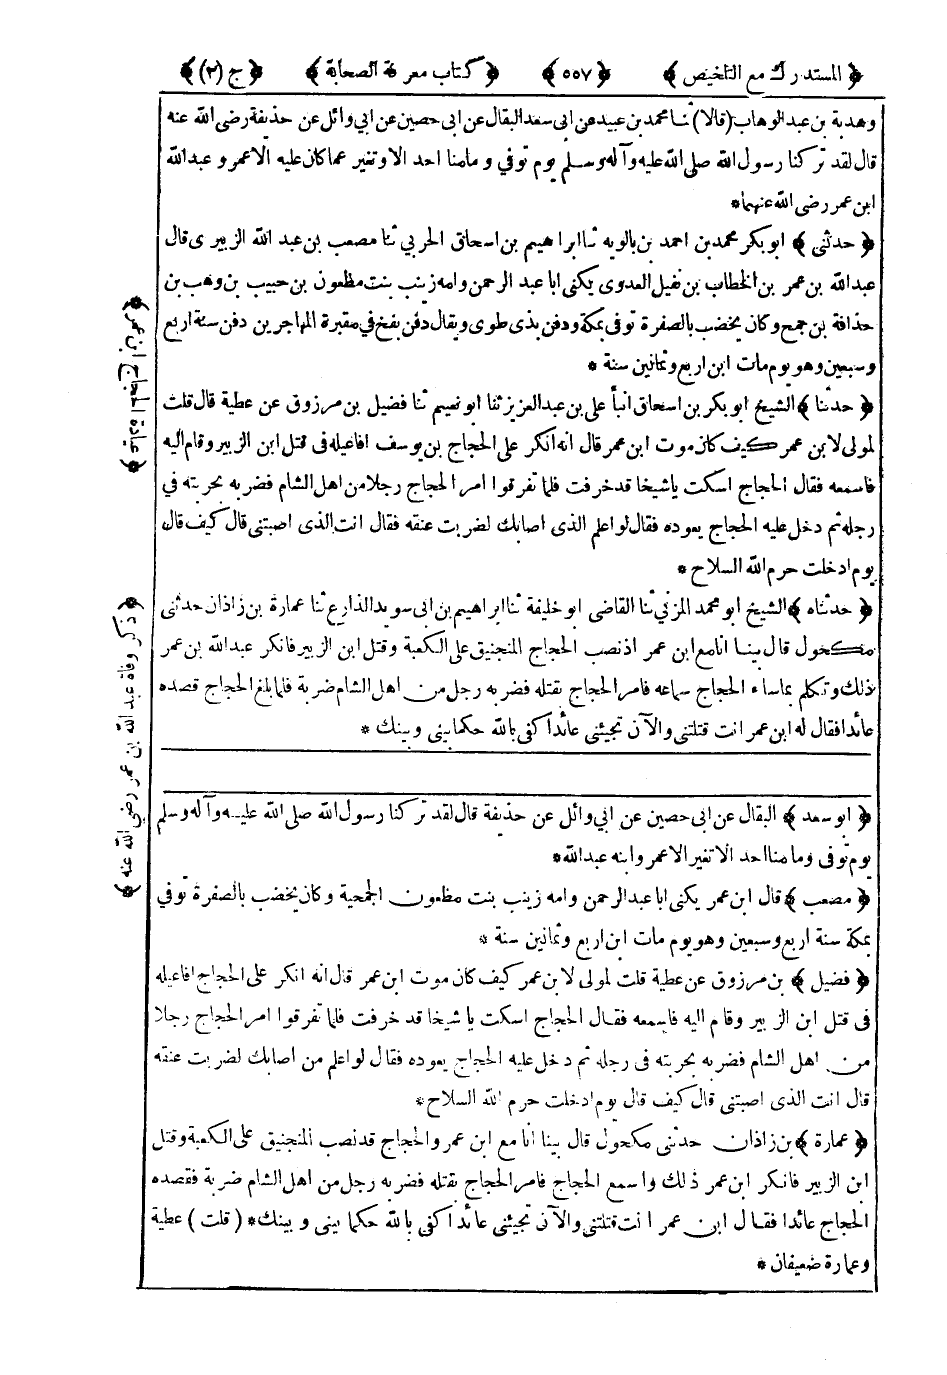 ﴿ المستدرك مع التلخيص ﴾ ﴿ ٥٥٧ ﴾ ﴿ كتاب معرفة الصحابة ﴾ ﴿ ج (٣) ﴾
وهدبة بن عبد الوهاب (قالا) ثنا محمد بن عبيد عن ابى سعد البقال عن ابى حصين عن ابي وائل عن حذيفة رضى الله عنه
قال لقد تركنا رسول الله صلى الله عليه وآله وسلم يوم توفي وما منا احد الا وتغير عما كان عليه الا عمر و عبد الله
ابن عمر رضى الله عنهما*
﴿ حدثنى ﴾ ابو بكر محمد بن احمد بن بالويه ثنا ابراهيم بن اسحاق الحربي ثنا مصعب بن عبد الله الزبيرى قال
عبد الله بن عمر بن الخطاب بن نفيل العدوى يكنى ابا عبد الرحمن وامه زينب بنت مظعون بن حبيب بن وهب بن
حذافة بن جمح وكان يخضب بالصفرة توفى بمكة ودفن بذى طوى ويقال دفن بفخ في مقبرة المهاجرين دفن سنة اربع
وسبعين وهو يوم مات ابن اربع وثمانين سنة *
﴿ حدثنا ﴾ الشيخ ابو بكر بن اسحاق انبأ على بن عبد العزيز ثنا ابو نعيم ثنا فضيل بن مرزوق عن عطية قال قلت
لمولى لابن عمر كيف كان موت ابن عمر قال انه انكر على الحجاج بن يوسف افاعيله فى قتل ابن الزبير وقام اليه
فاسمعه فقال الحجاج اسكت يا شيخا قد خرفت فلما تفرقوا امر الحجاج رجلا من اهل الشام فضربه بحربته في
رجله ثم دخل عليه الحجاج يعوده فقال لو اعلم الذى اصابك لضربت عنقه فقال انت الذى اصبتنى قال كيف قال
يوم ادخلت حرم الله السلاح *
﴿ حدثناه ﴾ الشيخ ابو محمد المزني ثنا القاضى ابو خليفة ثنا ابراهيم بن ابى سويد الذارع ثنا عمارة بن زاذان حدثنى
مكحول قال بينا انا مع ابن عمر اذ نصب الحجاج المنجنيق على الكعبة وقتل ابن الزبير فانكر عبد الله بن عمر
ذلك وتكلم بما ساء الحجاج سماعه فامر الحجاج بقتله فضربه رجل من اهل الشام ضربة فلما بلغ الحجاج قصده
عائدا فقال له ابن عمر انت قتلتنى والآن تجيئنى عائدا كفى بالله حكما بينى وبينك *
﴿ ابو سعد ﴾ البقال عن ابى حصين عن ابي وائل عن حذيفة قال لقد تركنا رسول الله صلى الله عليه وآله وسلم
يوم توفى وما منا احد الا تغير الا عمر وابنه عبد الله*
﴿ مصعب ﴾ قال ابن عمر يكنى ابا عبد الرحمن وامه زينب بنت مظعون الجمحية وكان يخضب بالصفرة توفي
بمكة سنة اربع وسبعين وهو يوم مات ابن اربع وثمانين سنة *
﴿ فضيل ﴾ بن مرزوق عن عطية قلت لمولى لابن عمر كيف كان موت ابن عمر قال انه انكر على الحجاج افاعيله
فى قتل ابن الزبير وقام اليه فاسمعه فقال الحجاج اسكت يا شيخا قد خرفت فلما تفرقوا امر الحجاج رجلا
من اهل الشام فضربه بحربته فى رجله ثم دخل عليه الحجاج يعوده فقال لو اعلم من اصابك لضربت عنقه
قال انت الذى اصبتنى قال كيف قال يوم ادخلت حرم الله السلاح*
﴿ عمارة ﴾ بن زاذان حدثنى مكحول قال بينا انا مع ابن عمر والحجاج قد نصب المنجنيق على الكعبة وقتل
ابن الزبير فانكر ابن عمر ذلك واسمع الحجاج فامر الحجاج بقتله فضربه رجل من اهل الشام ضربة فقصده
الحجاج عائدا فقال ابن عمر انت قتلتنى والآن تجيئنى عائدا كفى بالله حكما بينى وبينك* ( قلت ) عطية
وعمارة ضعيفان *
﴿ عيادة الحجاج ابن عمر ﴾
﴿ ذكر وفاة عبد الله بن عمر رضي الله عنه ﴾